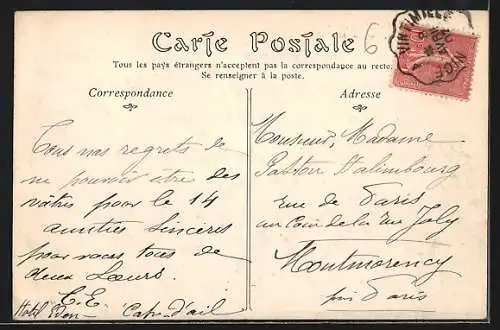 Carte Postale
6
Tous les pays étrangers n'acceptent pas la correspondance au recto.
Se renseigner à la poste.
Correspondance
Adresse
VINTIMILLE
NICE
Tous nos regrets de
ne pouvoir être des
vôtres pour le 14
amitiés sincères
pour vous tous de
deux Sœurs.
E. E.
Hotel Eden - Cap-d'ail
Monsieur, Madame
Gaston
rue de Paris
au Coin de la rue Joly
Montmorency
près Paris